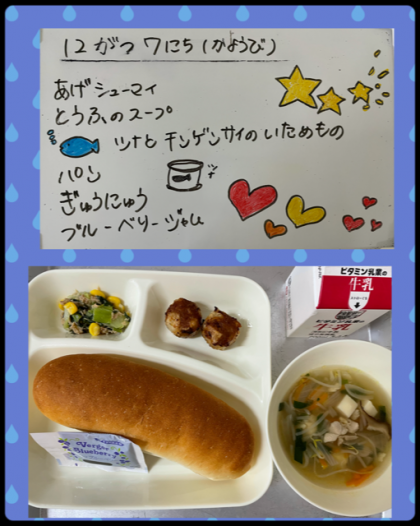 12がつ7にち(かようび)
あげシューマイ
とうふのスープ
ツナとチンゲンサイのいためもの
パン
ツナ
ぎゅうにゅう
ブルーベリージャム
ビタミン乳業の
牛乳
牛乳